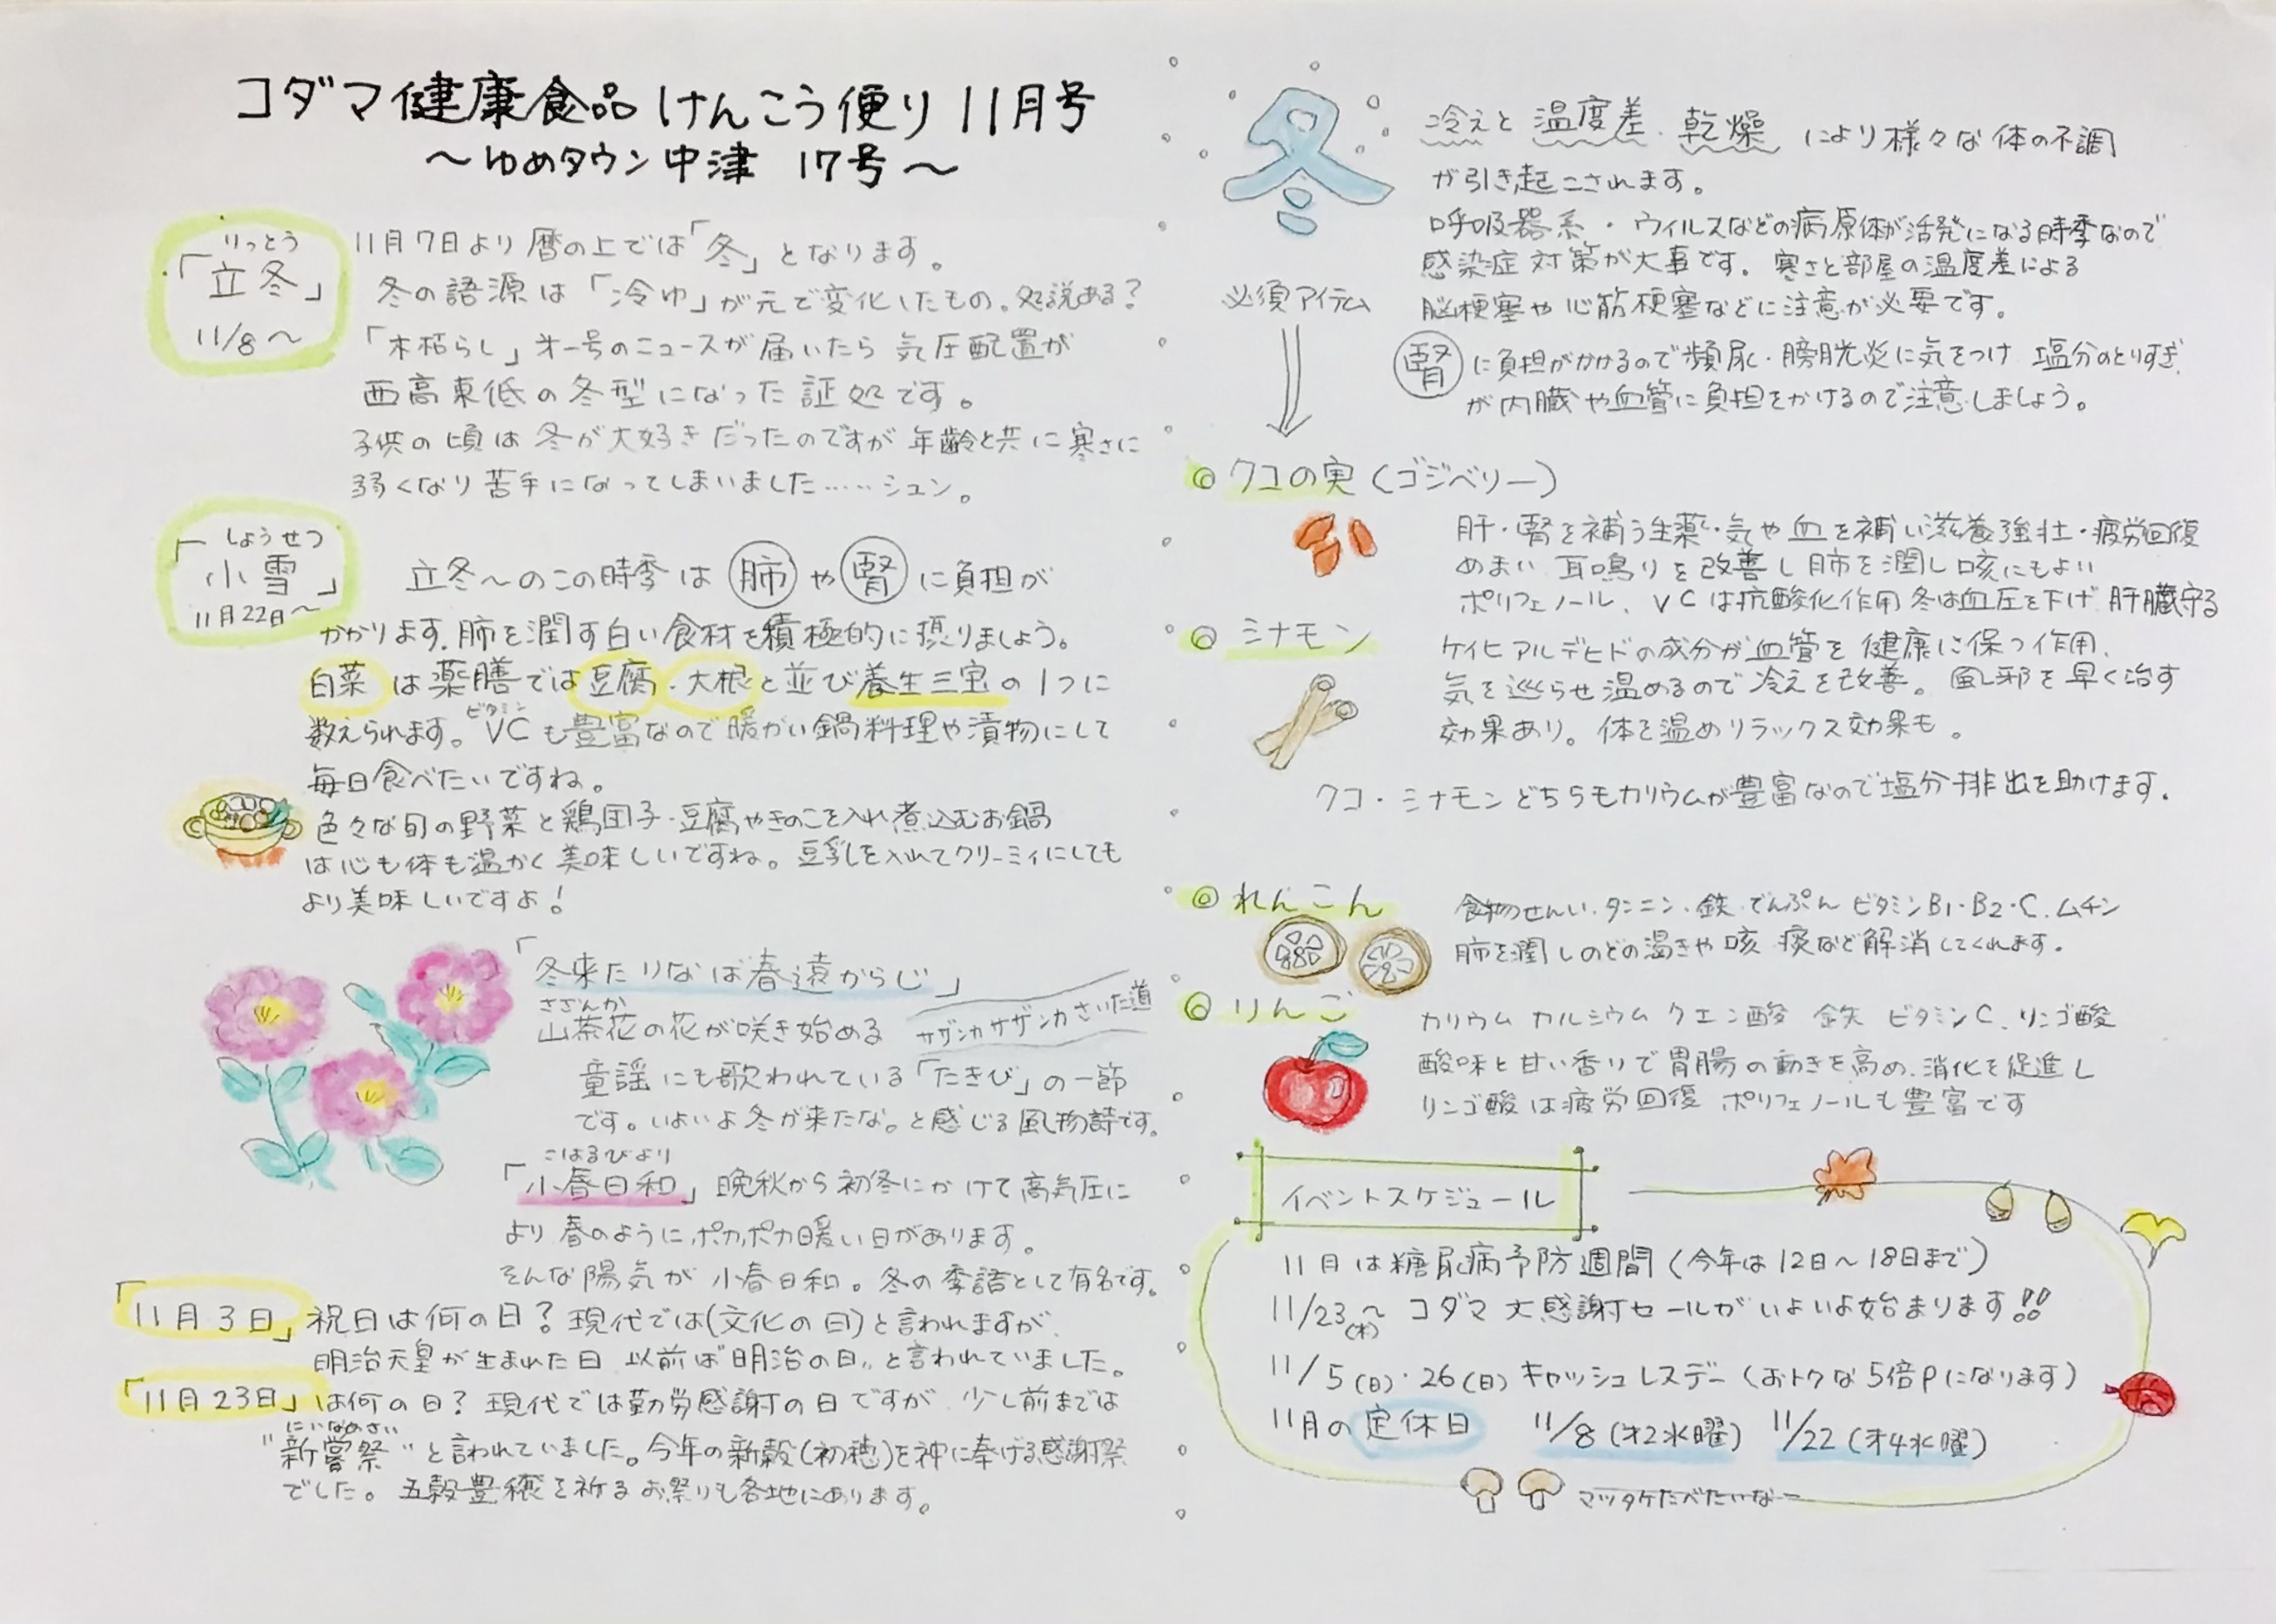 コダマ健康食品 けんこう便り 11月号
～ゆめタウン中津 17号～
りっとう
「立冬」
11/8～
11月7日より暦の上では「冬」となります。
冬の語源は「冷ゆ」が元で変化したもの。処説ある?
「木枯らし」才一号のニュースが届いたら 気圧配置が
西高東低の冬型になった証処です。
子供の頃は冬が大好きだったのですが年齢と共に寒さに
弱くなり苦手になってしまいました……シュン。
しょうせつ
「小雪」
11月22日～
立冬～のこの時季は 肺 や 腎 に負担が
かかります。肺を潤す白い食材を積極的に摂りましょう。
白菜は薬膳では豆腐・大根と並び養生三宝の1つに
ビタミン
数えられます。VCも豊富なので暖かい鍋料理や漬物にして
毎日食べたいですね。
色々な旬の野菜と鶏団子・豆腐やきのこを入れ煮込むお鍋
は心も体も温かく美味しいですね。豆乳を入れてクリーミィにしても
より美味しいですよ!
「冬来たりなば春遠からじ」
さざんか
山茶花の花が咲き始める
サザンカサザンカさいた道
童謡にも歌われている「たきび」の一節
です。いよいよ冬が来たな。と感じる風物詩です。
こはるびより
「小春日和」晩秋から初冬にかけて高気圧に
より春のようにポカポカ暖い日があります。
そんな陽気が小春日和。冬の季語として有名です。
「11月3日」祝日は何の日?現代では(文化の日)と言われますが、
明治天皇が生まれた日 以前は"明治の日"と言われていました。
「11月23日」は何の日?現代では勤労感謝の日ですが 少し前までは
にいなめさい
"新嘗祭"と言われていました。今年の新穀(初穂)を神に奉げる感謝祭
でした。五穀豊穣を祈るお祭りも各地にあります。
冬
冷えと温度差・乾燥により様々な体の不調
が引き起こされます。
呼吸器系・ウィルスなどの病原体が活発になる時季なので
感染症対策が大事です。寒さと部屋の温度差による
脳梗塞や心筋梗塞などに注意が必要です。
腎に負担がかかるので頻尿・膀胱炎に気をつけ 塩分のとりすぎ
が内臓や血管に負担をかけるので注意しましょう。
必須アイテム
◎クコの実(ゴジベリー)
肝・腎を補う生薬・気や血を補い滋養強壮・疲労回復
めまい 耳鳴りを改善し肺を潤し咳にもよい
ポリフェノール、VCは抗酸化作用 冬は血圧を下げ 肝臓守る
◎ミナモン
ケイヒアルデヒドの成分が血管を健康に保つ作用、
気を巡らせ温めるので冷えを改善。風邪を早く治す
効果あり。体を温めリラックス効果も。
クコ・ミナモンどちらもカリウムが豊富なので塩分排出を助けます。
◎れんこん
食物せんい・タンニン・鉄・でんぷん ビタミンB1・B2・C、ムチン
肺を潤しのどの渇きや咳 痰など解消してくれます。
◎りんご
カリウム カルシウム クエン酸 鉄 ビタミンC、リンゴ酸
酸味と甘い香りで胃腸の動きを高め、消化を促進し
リンゴ酸は疲労回復 ポリフェノールも豊富です
イベントスケジュール
11月は糖尿病予防週間(今年は12日～18日まで)
11/23(木)～ コダマ大感謝セールがいよいよ始まります!!
11/5(日)・26(日)キャッシュレスデー(おトクな5倍Pになります)
11月の定休日 11/8(才2水曜) 11/22(才4水曜)
マツタケたべたいなー